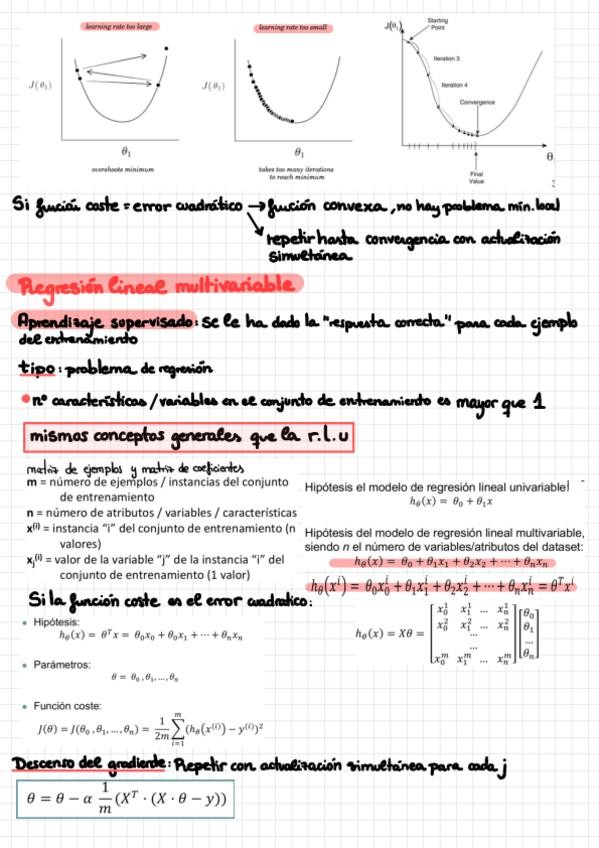 learning rate too large
learning rate too small
J(θ₁)
Starting
Point
Iteration 3
Iteration 4
Convergence
Final
Value
θ
J(θ₁)
θ₁
overshoots minimum
J(θ₁)
θ₁
takes too many iterations
to reach minimum
Si función coste = error cuadrático → función convexa, no hay problema mín. local
↘ repetir hasta convergencia con actualización
simultánea
Regresión lineal multivariable
Aprendizaje supervisado: se le ha dado la "respuesta correcta" para cada ejemplo
del entrenamiento
tipo: problema de regresión
• nº características / variables en el conjunto de entrenamiento es mayor que 1
mismos conceptos generales que la r.l.u
matriz de ejemplos y matriz de coeficientes
m = número de ejemplos / instancias del conjunto
de entrenamiento
n = número de atributos / variables / características
x⁽ⁱ⁾ = instancia "i" del conjunto de entrenamiento (n
valores)
xⱼ⁽ⁱ⁾ = valor de la variable "j" de la instancia "i" del
conjunto de entrenamiento (1 valor)
Hipótesis el modelo de regresión lineal univariable
hθ(x) = θ₀ + θ₁x
Hipótesis del modelo de regresión lineal multivariable,
siendo n el número de variables/atributos del dataset:
hθ(x) = θ₀ + θ₁x₁ + θ₂x₂ + ⋯ + θₙxₙ
hθ(xⁱ) = θ₀x₀ⁱ + θ₁x₁ⁱ + θ₂x₂ⁱ + ⋯ + θₙxₙⁱ = θᵀxⁱ
hθ(x) = Xθ = [x₀¹ x₁¹ ... xₙ¹; x₀² x₁² ... xₙ²; ...; ...; x₀ᵐ x₁ᵐ ... xₙᵐ] [θ₀; θ₁; ...; θₙ]
Si la función coste es el error cuadratico:
• Hipótesis:
hθ(x) = θᵀx = θ₀x₀ + θ₀x₁ + ⋯ + θₙxₙ
• Parámetros:
θ = θ₀, θ₁, …, θₙ
• Función coste:
J(θ) = J(θ₀, θ₁, …, θₙ) = 1/2m ∑ᵢ₌₁ᵐ (hθ(x⁽ⁱ⁾) − y⁽ⁱ⁾)²
Descenso del gradiente: Repetir con actualización simultánea para cada j
θ = θ − α 1/m (Xᵀ · (X · θ − y))